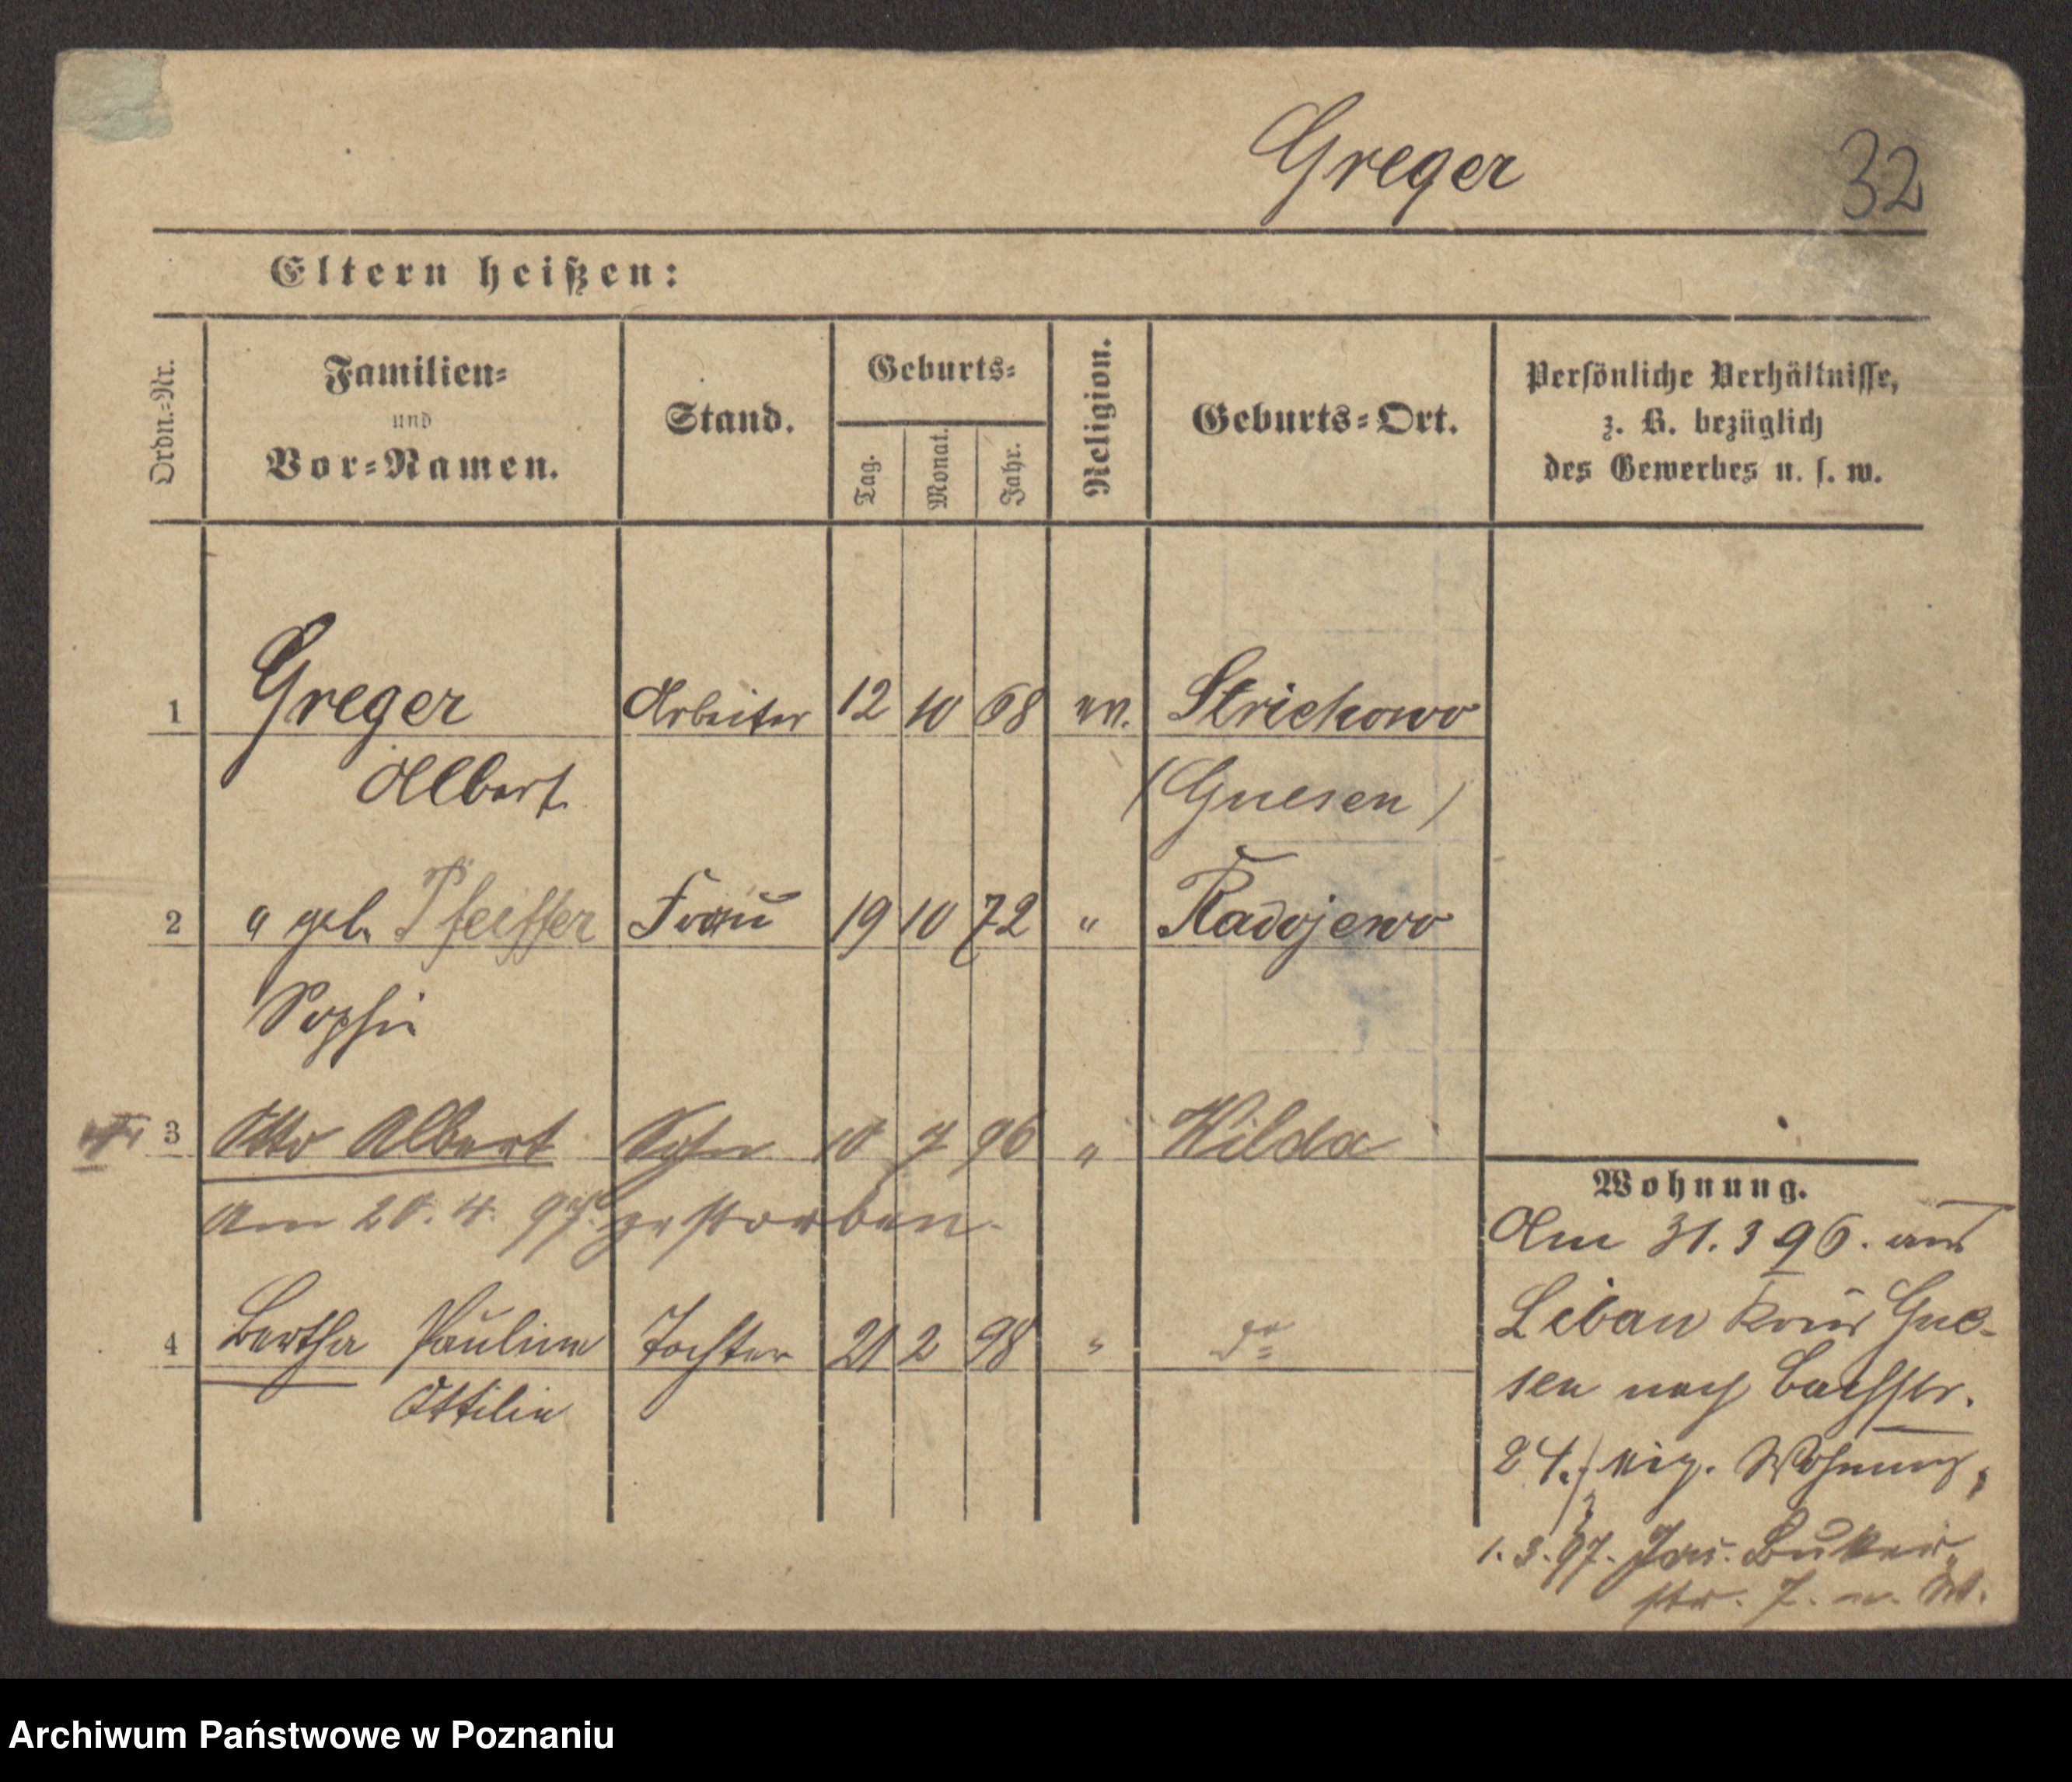 Greger
32
Eltern heißen:
Ordn.-Nr.
Familien-
und
Vor-Namen.
Stand.
Geburts-
Tag.
Monat.
Jahr.
Religion.
Geburts-Ort.
Persönliche Verhältnisse,
z. B. bezüglich
des Gewerbes u. s. w.
1 Greger Arbeiter 12 10 68 ev. Striehowo
Albert (Gnesen)
2 " geb. Pfeiffer Frau 19 10 72 " Radojewo
Sophie
3 Otto Albert Sohn 10 7 96 " Wilda
Am 20. 4. 97 gestorben.
4 Bertha Pauline Tochter 21 2 98 " do
Ottilie
Wohnung.
Am 31. 3 96. aus
Libau Kreis Gne-
sen nach Bachstr.
24./ eig. Wohnung,
1. 3. 97. Buker
str. 7. W.